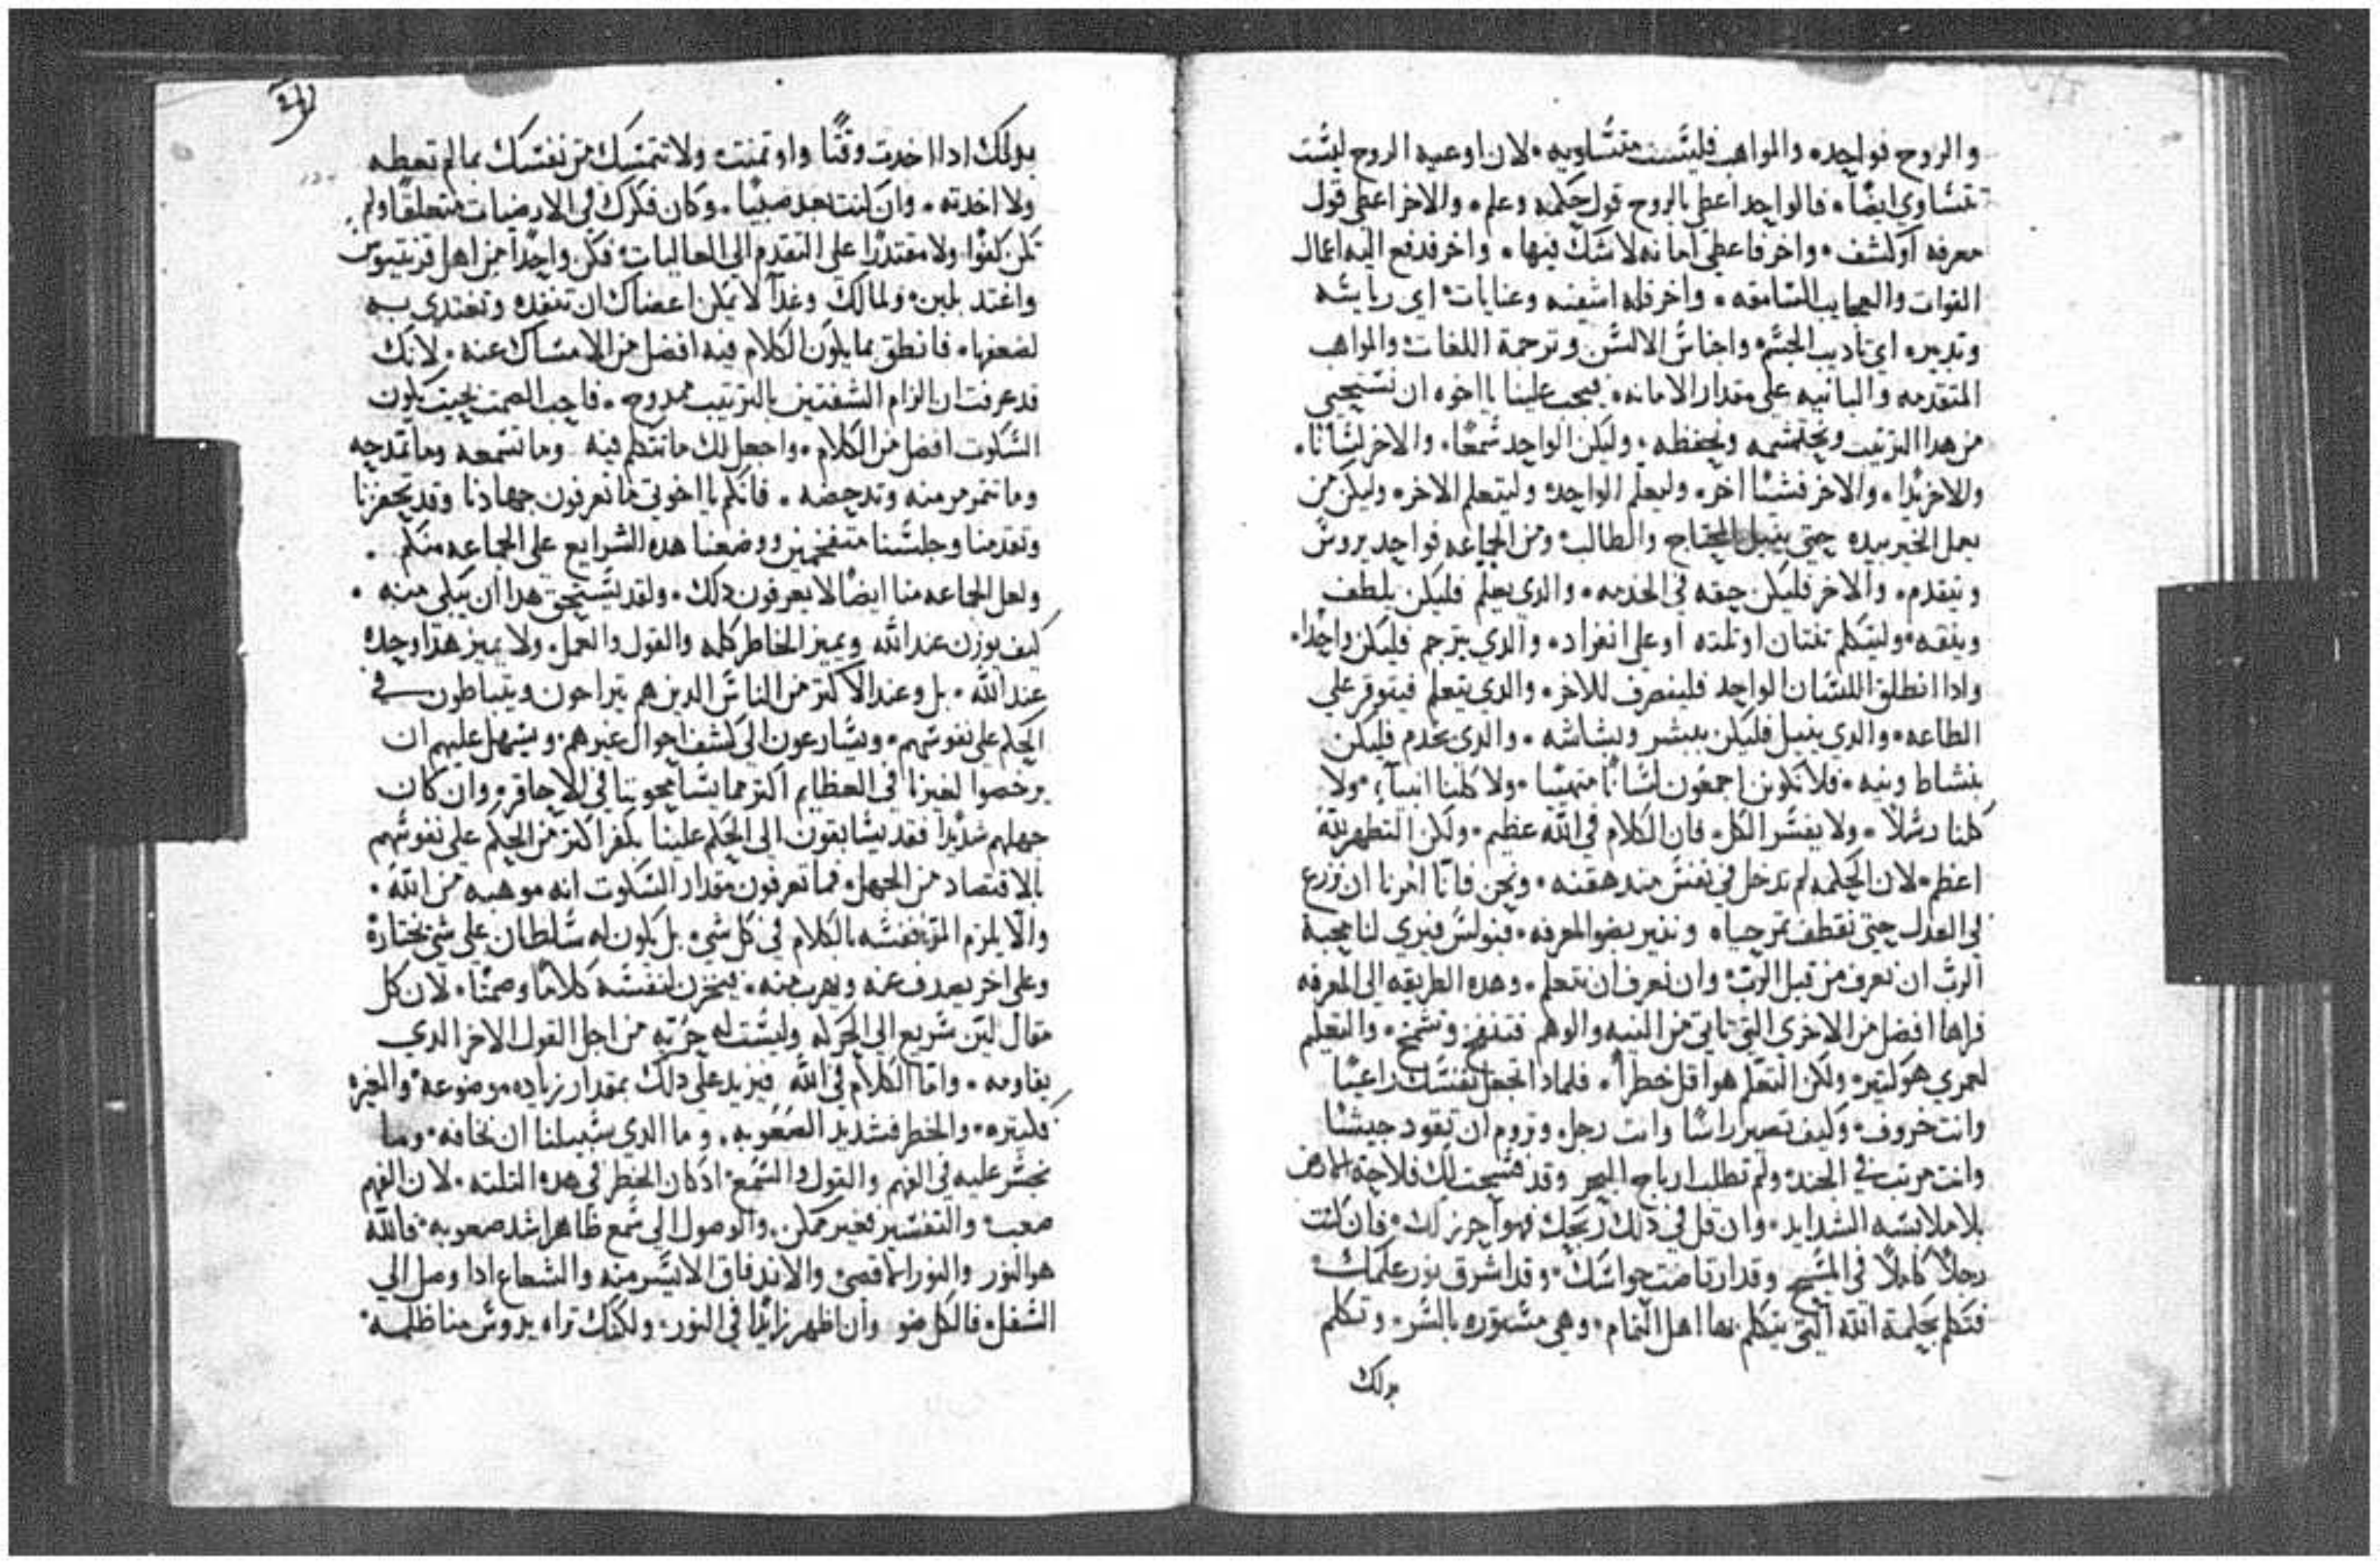 والروح فواحده والمواهب فليست متساويه، لان اوعيه الروح ليست
تتساوي ايضًا، فالواحد اعطي بالروح قول حكمه وعلم، والاخر اعطي قول
معرفه او كشف، واخر فاعطي امانه لا شك فيها، واخر فدفع اليه اعمال
القوات والعجايب السامقه، واخر فله اشفيه وعنايات، اي رياسه
وتدبير، اي تاديب الجسم، واجناس الالسن وترجمة اللغات والمواهب
المتقدمه والتانيه علي مقدار الامانه، فيجب علينا يا اخوه ان نستحيي
من هدا الترتيب ونحتشمه ونحفظه، وليكن الواحد سمعًا، والاخر لسانًا،
والاخر يدًا، والاخر فشيئًا اخر، وليعلم الواحد، وليتعلم الاخر، وليكن من
يعمل الخير بيده حتي ينيل المحتاج والطالب، ومن الجماعه فواحد يروس
ويتقدم، والاخر فليكن حقه في الخدمه، والدي يعلم فليكن بلطف
وبفقه، وليتكلم تنتان او تلته او علي انفراده، والدي يترجم فليكن واحدًا،
وادا انطلق اللسان الواحد فلينصرف للاخر، والدي يتعلم فيتوقر علي
الطاعه، والدي ينيل فليكن ببشر وبشاشه، والدي يخدم فليكن
بنشاط ونيه، فلا نكونن اجمعون لسانًا متهيئًا، ولا كلنا انبيآء، ولا
كلنا رسلًا، ولا يفسر الكل، فان الكلام في الله عظيم، ولكن التطهر لله
اعظم، لان الحكمه لم تدخل في نفس منددهقنه، ونحن فانّا امرنا ان نزرع
في العدل حتي نقطف تمر حياه وننير بضو المعرفه، فبولس فيري لنا محبة
الربّ ان نعرف من قبل الربّ، وان نعرف ان نتعلم، وهده الطريقه الي المعرفه
فراها افضل من الاخري التي تاتي من التيه والوهم فتنفخ وتشمخ، والتعليم
لعمري هو كبير، ولكن التعلم هو اقل خطرًا، فلمادا تجعل نفسك راعيًا
وانت خروف، وكيف تصير راسًا وانت رجل، وتروم ان تقود جيشًا
وانت مرتب في الجند، ولم تطلب ارباح البحر وقد فسحت لك فلاحة الارض
بلا ملابسه الشدايد، وان قل في دلك ربحك فهو احرز لك، فان كنت
رجلًا كاملًا في المسيح وقد ارتاضت حواسك، وقد اشرق نور علمك،
فتكلم بحكمة الله التي يتكلم بها اهل التمام، وهي مستوره بالسر، وتكلم
بدلك
بدلك ادا اخدت وقتًا واوتمنت، ولا تتمسك من نفسك بما لم تعطه
ولا اخدته، وان كنت بعد صبيًا، وكان فكرك في الارضيات متعلقًا ولم
تكن كفوًا ولا مقتدرًا علي التقدم الي العاليات، فكن واحدًا من اهل قرنتيوس
واغتد بلبن، ولما لك وغدآ لا يمكن اعضاك ان تنفده وتغتدي به
لضعفها، فانطق بما يكون الكلام فيه افضل من الامساك عنه، لانك
قد عرفت ان الزام الشفتين بالترتيب ممدوح، فاحب الصمت بحيت يكون
السكوت افضل من الكلام، واجعل لك ما تتكلم فيه وما تسمعه وما تمدحه
وما تتمرمر منه وتدحضه، فانكم يا اخوتي ما تعرفون جهادنا وقد تحفزنا
وتقدمنا وجلسنا متفخمين ووضعنا هده الشرايع علي الجماعه منكم،
ولعل الجماعه منا ايضًا لا يعرفون دلك، ولقد يستحق هدا ان يبكي منه،
كيف يوزن عند الله ويميز الخاطر كله والقول والعمل، ولا يميز هدا وحده
عند الله، بل وعند الاكتر من الناس الدين هم يتراحون ويتباطون في
الحكم علي نفوسهم، ويسارعون الي كشف احوال غيرهم، ويسهل عليهم ان
يرخصوا لغيرنا في العظايم اكتر مما يسامحوننا في الاحاقر، وان كان
جهلهم شديدًا فقد يسابقون الي الحكم علينا بكفر اكتر من الحكم علي نفوسهم
بالاقتصاد من الجهل، فما تعرفون مقدار السكوت انه موهبه من الله،
والّا يلزم المرء نفسه بالكلام في كل شي، بل يكون له سلطان علي شي يختاره
وعلي اخر يصدف عنه ويهرب منه، فيخزن لنفسه كلامًا وصمتًا، لان كل
مقال ليّن سريع الي الحركه وليست له حريه من اجل القول الاخر الدي
يقاومه، وامّا الكلام في الله فيزيد علي دلك بمقدار زياده موضوعه، والغيره
كتيره، والخطر فشديد الصعوبه، وما الدي سبيلنا ان نخافه، وما
نجسر عليه في الفهم والقول والسمع، اد كان الخطر في هده التلته، لان الفهم
صعب، والتفسير فغير ممكن، والوصول الي سمع ظاهر اشد صعوبه، فالله
هو النور والنور الاقصي، والاندفاق الايسر منه والشعاع ادا وصل الي
السفل، فالكل ضو وان ظهر زايدًا في النور، ولكنك تراه يدوس منا ظلمه،